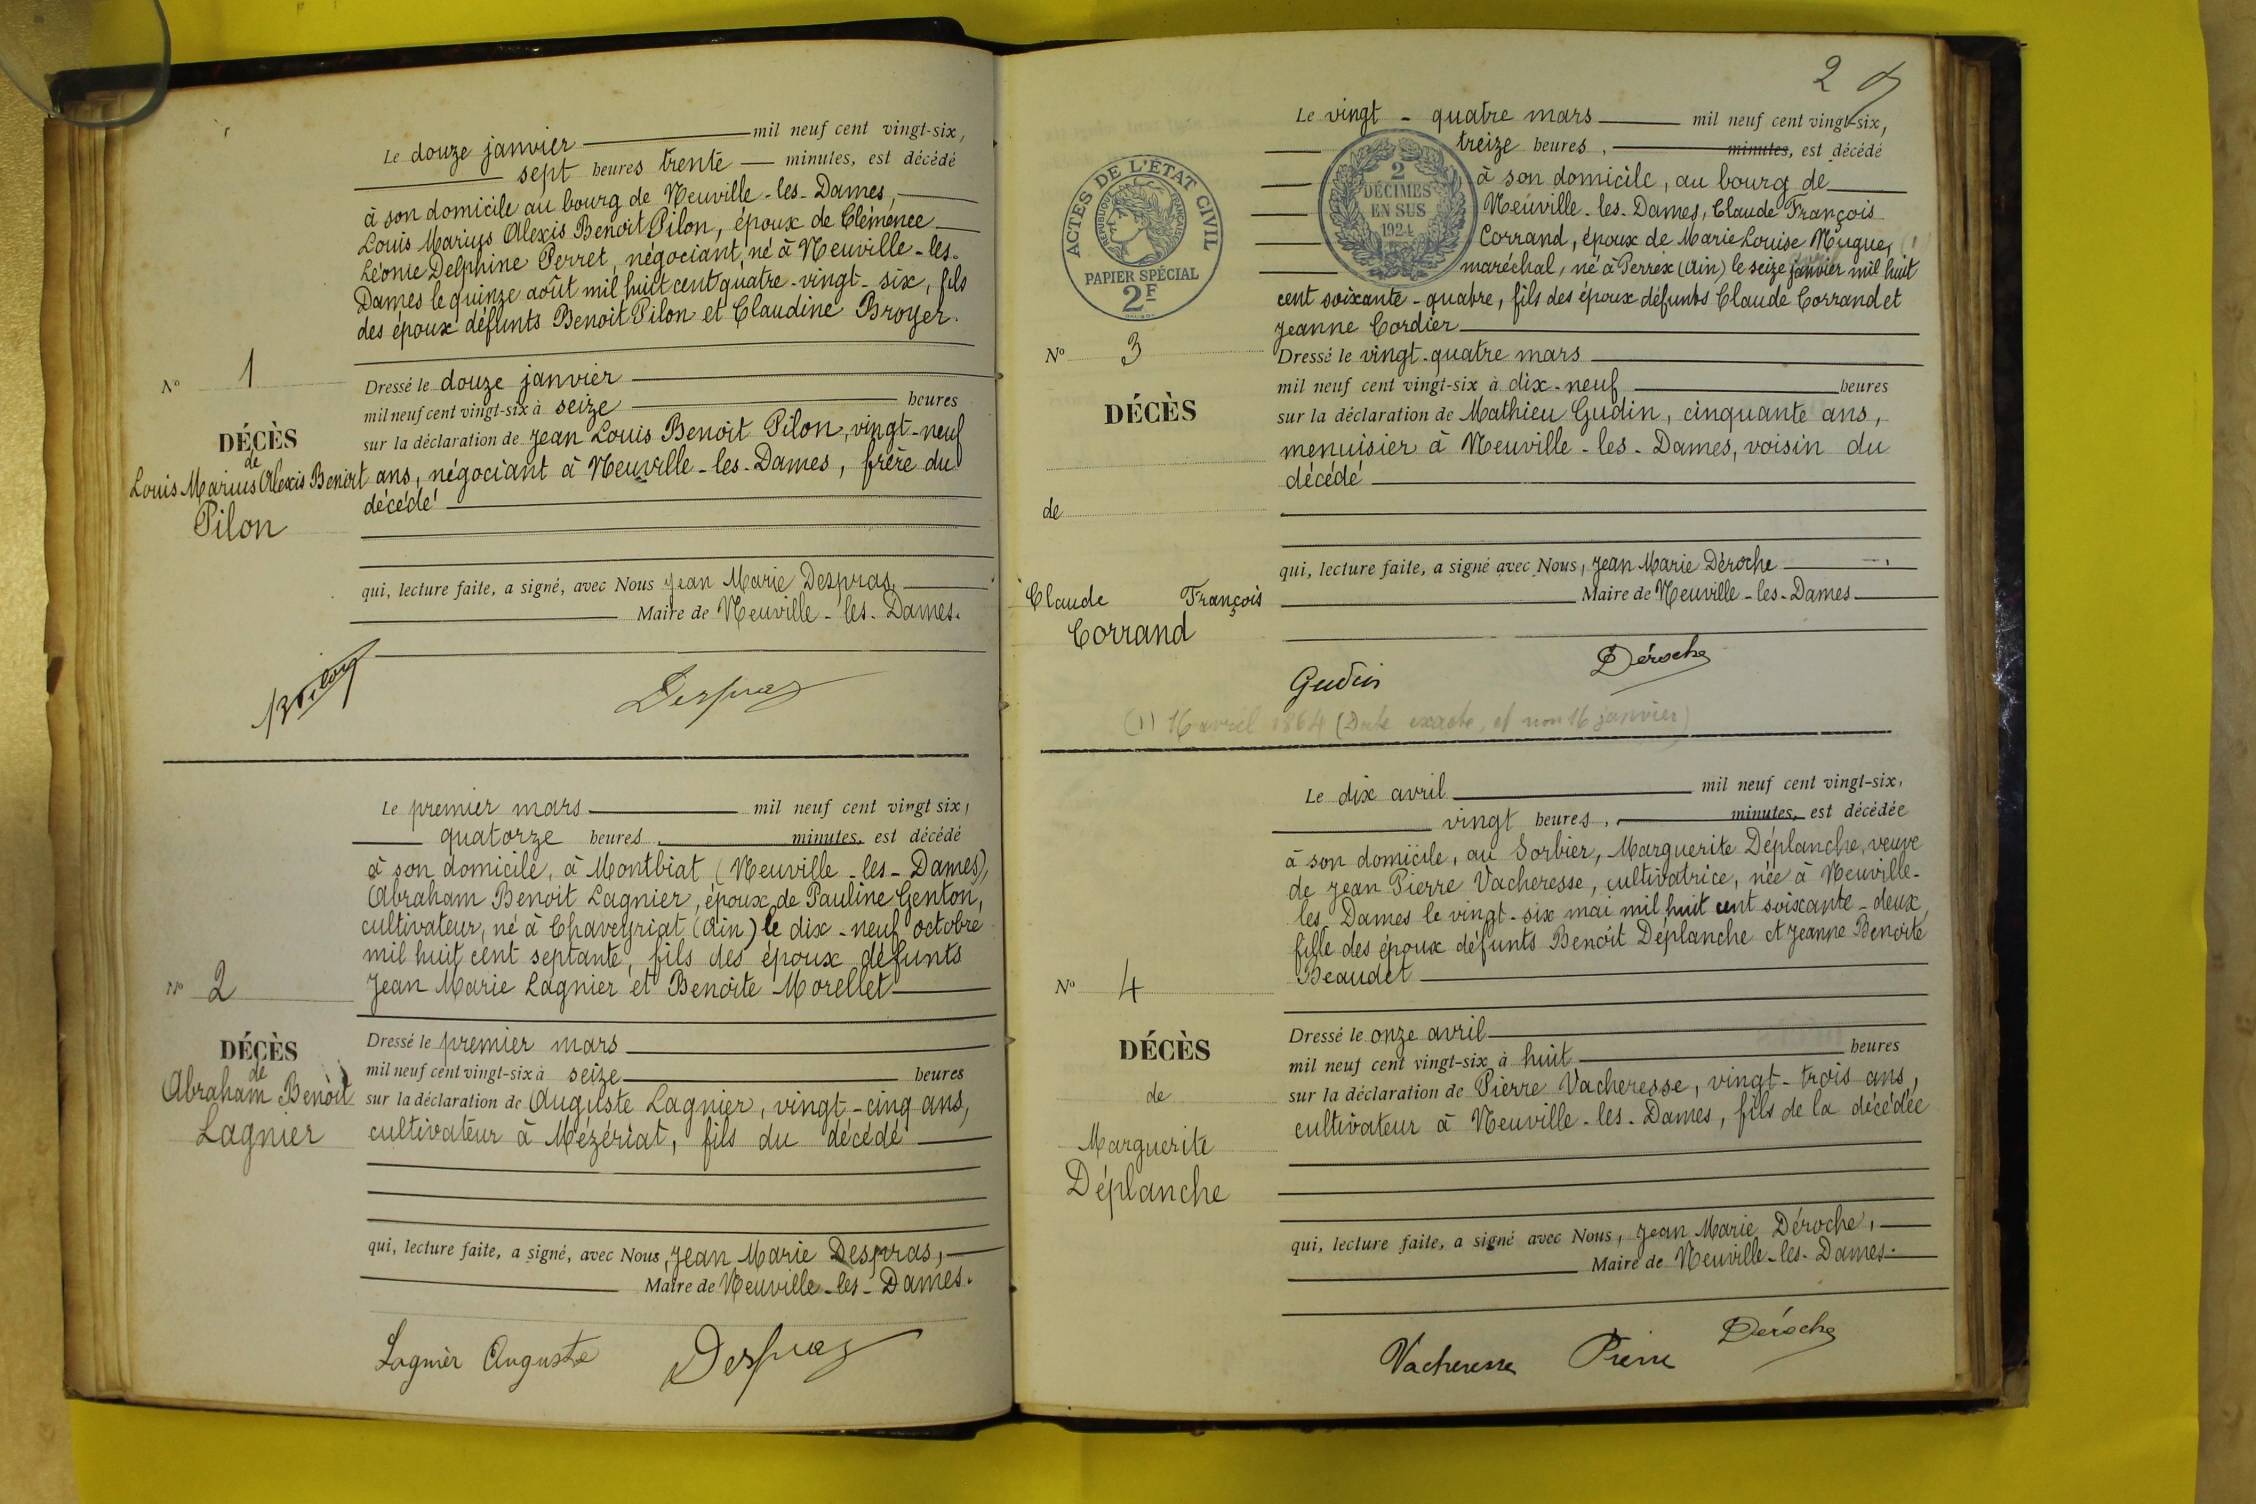 Le douze janvier mil neuf cent vingt-six,
sept heures trente minutes, est décédé
à son domicile au bourg de Neuville-les-Dames,
Louis Marius Alexis Benoît Pilon, époux de Clémence
Léonie Delphine Perret, négociant, né à Neuville-les-
Dames le quinze août mil huit cent quatre-vingt-six, fils
des époux défunts Benoit Pilon et Claudine Broyer.
N° 1
DÉCÈS
de
Louis Marius Alexis Benoit
Pilon
Dressé le douze janvier
mil neuf cent vingt-six à seize heures
sur la déclaration de Jean Louis Benoît Pilon, vingt-neuf
ans, négociant à Neuville-les-Dames, frère du
décédé
qui, lecture faite, a signé, avec Nous Jean Marie Despras,
Maire de Neuville-les-Dames.
Despras
Le premier mars mil neuf cent vingt six,
quatorze heures, minutes, est décédé
à son domicile, à Montbiat (Neuville-les-Dames),
Abraham Benoit Lagnier, époux de Pauline Genton,
cultivateur, né à Chaveyriat (Ain) le dix-neuf octobre
mil huit cent septante, fils des époux défunts
Jean Marie Lagnier et Benoîte Morellet
N° 2
DÉCÈS
de
Abraham Benoît
Lagnier
Dressé le premier mars
mil neuf cent vingt-six à seize heures
sur la déclaration de Auguste Lagnier, vingt-cinq ans,
cultivateur à Mézériat, fils du décédé
qui, lecture faite, a signé, avec Nous, Jean Marie Despras,
Maire de Neuville-les-Dames.
Lagnier Auguste Despras
2
ACTES DE L'ÉTAT CIVIL
RÉPUBLIQUE FRANÇAISE
PAPIER SPÉCIAL
2F
2
DÉCIMES
EN SUS
1924
Le vingt-quatre mars mil neuf cent vingt-six,
treize heures, minutes, est décédé
à son domicile, au bourg de
Neuville-les-Dames, Claude François
Corrand, époux de Marie Louise Mugue, (1)
maréchal, né à Perrex (Ain) le seize janvier mil huit
avril
cent soixante-quatre, fils des époux défunts Claude Corrand et
Jeanne Cordier
N° 3
DÉCÈS
de
Claude François
Corrand
Dressé le vingt-quatre mars
mil neuf cent vingt-six à dix-neuf heures
sur la déclaration de Mathieu Gudin, cinquante ans,
menuisier à Neuville-les-Dames, voisin du
décédé
qui, lecture faite, a signé avec Nous, Jean Marie Déroche,
Maire de Neuville-les-Dames
Gudin Déroche
(1) 16 avril 1864 (Date exacte, et non 16 janvier)
Le dix avril mil neuf cent vingt-six,
vingt heures, minutes, est décédée
à son domicile, au Sorbier, Marguerite Déplanche, veuve
de Jean Pierre Vacheresse, cultivatrice, née à Neuville-
les-Dames le vingt-six mai mil huit cent soixante-deux,
fille des époux défunts Benoît Déplanche et Jeanne Benoîte
Beaudet
N° 4
DÉCÈS
de
Marguerite
Déplanche
Dressé le onze avril
mil neuf cent vingt-six à huit heures
sur la déclaration de Pierre Vacheresse, vingt-trois ans,
cultivateur à Neuville-les-Dames, fils de la décédée
qui, lecture faite, a signé avec Nous, Jean Marie Déroche,
Maire de Neuville-les-Dames.
Vacheresse Pierre Déroche